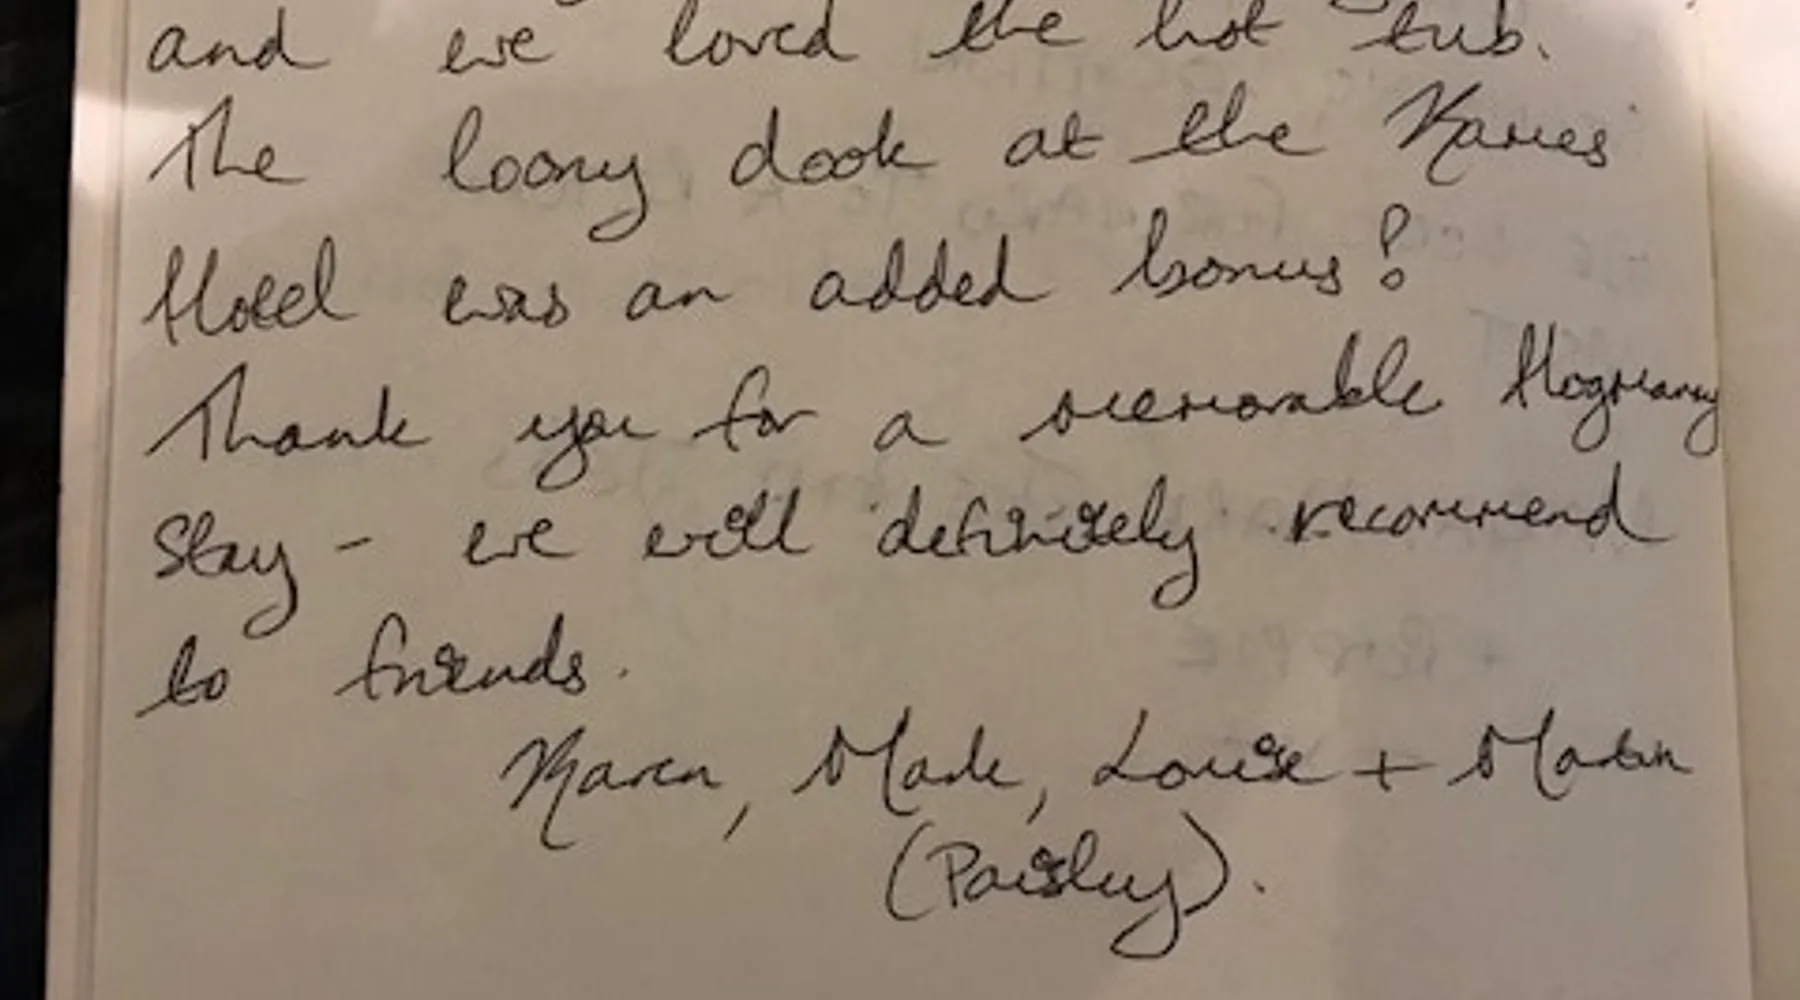 and we loved the hot tub.
The loony dook at the Kames
Hotel was an added bonus!
Thank you for a memorable Hogmany
stay - we will definitely recommend
to friends.
Karen, Mark, Louise + Martin
(Paisley).